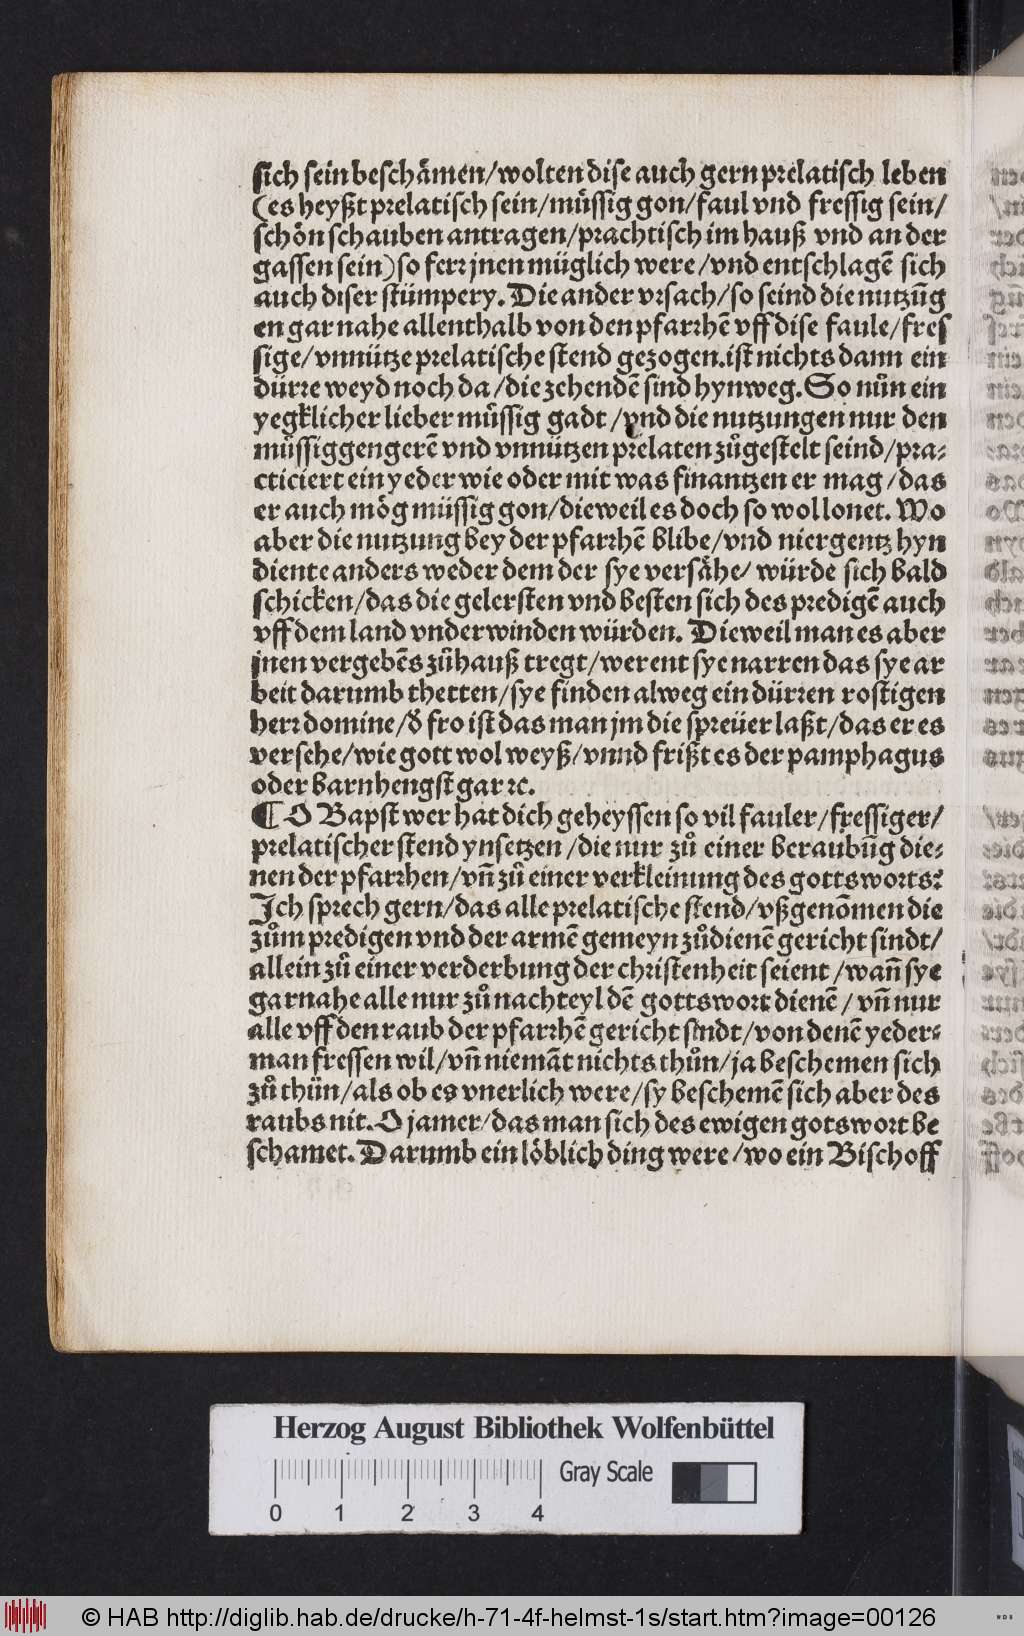 sich sein beschaͤmen/wolten dise auch gern prelatisch leben
(es heyßt prelatisch sein/muͤssig gon/faul vnd fressig sein/
schoͤn schauben antragen/prachtisch im hauß vnd an der
gassen sein) so ferr jnen müglich were/vnd entschlagē sich
auch diser stümpery. Die ander vrsach/so seind die nutzūg
en gar nahe allenthalb von den pfarrhē vff dise faule/fres
sige/vnnütze prelatische stend gezogen.ist nichts dann ein
dürre weyd noch da/die zehendē sind hynweg. So nůn ein
yegklicher lieber muͤssig gadt/vnd die nutzungen nur den
muͤssiggengerē vnd vnnützen prelaten zůgestelt seind/pra⸗
cticiert ein yeder wie oder mit was finantzen er mag/das
er auch moͤg müssig gon/dieweil es doch so wol lonet. Wo
aber die nutzung bey der pfarrhē blibe/vnd niergentz hyn
diente anders weder dem der sye versaͤhe/würde sich bald
schicken/das die gelersten vnd besten sich des predigē auch
vff dem land vnderwinden würden. Dieweil man es aber
jnen vergebēs zůhauß tregt/werent sye narren das sye ar
beit darumb thetten/sye finden alweg ein dürren rostigen
herr domine/ð fro ist das man jm die spreüer laßt/das er es
versehe/wie gott wol weyß/vnnd frißt es der pamphagus
oder barnhengst gar ꝛc.
¶ O Bapst wer hat dich geheyssen so vil fauler/fressiger/
prelatischer stend ynsetzen/die nur zů einer beraubūg die⸗
nen der pfarrhen/vñ zů einer verkleinung des gottsworts?
Ich sprech gern/das alle prelatische stend/vßgenōmen die
zům predigen vnd der armē gemeyn zůdienē gericht sindt/
allein zů einer verderbung der christenheit seient/wañ sye
gar nahe alle nur zů nachteyl dē gottswort dienē/vñ nur
alle vff den raub der pfarrhē gericht sindt/von denē yeder⸗
man fressen wil/vñ niemāt nichts thůn/ja beschemen sich
zů thün/als ob es vnerlich were/sy beschemē sich aber des
raubs nit. O jamer/das man sich des ewigen gotswort be
schamet. Darumb ein loͤblich ding were/wo ein Bischoff
Herzog August Bibliothek Wolfenbüttel
Gray Scale
0 1 2 3 4
© HAB http://diglib.hab.de/drucke/h-71-4f-helmst-1s/start.htm?image=00126